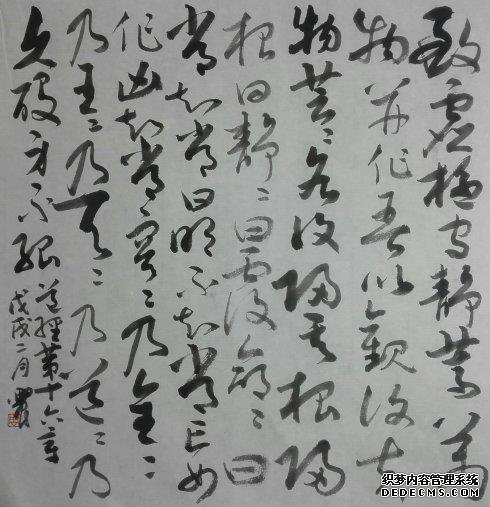 致虚極守静篤萬
物并作吾以觀復夫
物芸〻各復歸其根歸
根曰静〻曰復命〻曰
常知常曰明不知常妄
作凶知常容〻乃公〻
乃王〻乃天〻乃道〻乃
久殁身不殆
道经第十六章
戊戌二月
织梦内容管理系统
DEDECMS.COM